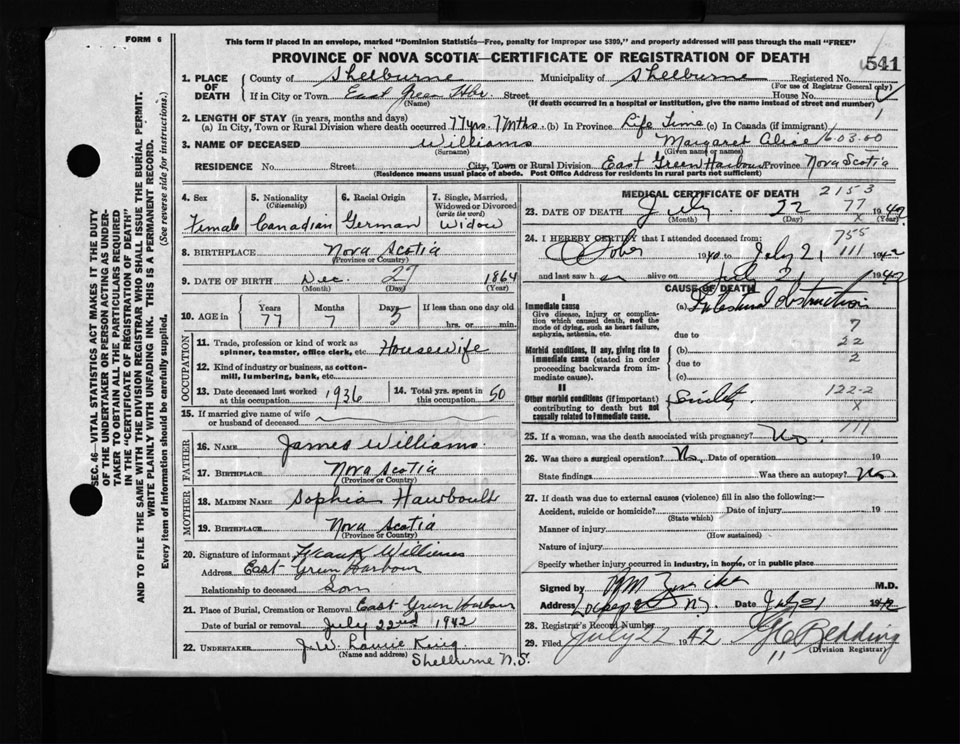 FORM 6
This form if placed in an envelope, marked "Dominion Statistics—Free, penalty for improper use $300," and properly addressed will pass through the mail "FREE"
PROVINCE OF NOVA SCOTIA—CERTIFICATE OF REGISTRATION OF DEATH
541
1. PLACE OF DEATH
County of Shelburne Municipality of Shelburne Registered No.
(For use of Registrar General only)
If in City or Town East Green Hbr. Street House No.
(Name) (If death occurred in a hospital or institution, give the name instead of street and number)
2. LENGTH OF STAY (in years, months and days)
(a) In City, Town or Rural Division where death occurred 77 yrs. 7 Mths. (b) In Province Life Time (c) In Canada (if immigrant)
3. NAME OF DECEASED Williams Margaret Alice 6-03-00
(Surname) (Given name or names)
RESIDENCE No. Street City, Town or Rural Division East Green Harbour Province Nova Scotia
(Residence means usual place of abode. Post Office Address for residents in rural parts not sufficient)
4. Sex
Female
5. Nationality
(Citizenship)
Canadian
6. Racial Origin
German
7. Single, Married, Widowed or Divorced
(write the word)
Widow
8. BIRTHPLACE Nova Scotia
(Province or Country)
9. DATE OF BIRTH Dec. 27 1864
(Month) (Day) (Year)
10. AGE in
Years 77
Months 7
Days
If less than one day old
hrs. or min.
OCCUPATION
11. Trade, profession or kind of work as spinner, teamster, office clerk, etc. Housewife
12. Kind of industry or business, as cotton-mill, lumbering, bank, etc.
13. Date deceased last worked at this occupation 1936
14. Total yrs. spent in this occupation 50
15. If married give name of wife or husband of deceased
FATHER
16. NAME James Williams
17. BIRTHPLACE Nova Scotia
(Province or Country)
MOTHER
18. MAIDEN NAME Sophia Hawboult
19. BIRTHPLACE Nova Scotia
(Province or Country)
20. Signature of informant Frank Williams
Address East Green Harbour
Relationship to deceased Son
21. Place of Burial, Cremation or Removal East Green Harbour
Date of burial or removal July 22nd 1942
22. UNDERTAKER J.W. Laurie King
(Name and address) Shelburne N.S.
MEDICAL CERTIFICATE OF DEATH
2153
77
X
23. DATE OF DEATH July 22 1942
(Month) (Day) (Year)
24. I HEREBY CERTIFY that I attended deceased from:
755
October 1940 to July 21 1942
111
and last saw her alive on July 21 1942
CAUSE OF DEATH
I
Immediate cause
Give disease, injury or complication which caused death, not the mode of dying, such as heart failure, asphyxia, asthenia, etc.
(a) Intestinal obstruction
7
due to
22
Morbid conditions, if any, giving rise to immediate cause (stated in order proceeding backwards from immediate cause).
(b)
2
due to
(c)
II
Other morbid conditions (if important) contributing to death but not causally related to immediate cause.
Senility
122-2
X
777
25. If a woman, was the death associated with pregnancy? No.
26. Was there a surgical operation? No. Date of operation 19
State findings Was there an autopsy? No
27. If death was due to external causes (violence) fill in also the following:—
Accident, suicide or homicide? Date of injury 19
(State which)
Manner of injury
(How sustained)
Nature of injury
Specify whether injury occurred in industry, in home, or in public place
Signed by M.D.
Address Lockeport N.S. Date July 21 1942
28. Registrar's Record Number
29. Filed July 22 1942 Redding
11 (Division Registrar)
SEC. 46—VITAL STATISTICS ACT MAKES IT THE DUTY
OF THE UNDERTAKER OR PERSON ACTING AS UNDER-
TAKER TO OBTAIN ALL THE PARTICULARS REQUIRED
IN THE "CERTIFICATE OF REGISTRATION OF DEATH"
AND TO FILE THE SAME WITH THE DIVISION REGISTRAR WHO SHALL ISSUE THE BURIAL PERMIT.
WRITE PLAINLY WITH UNFADING INK. THIS IS A PERMANENT RECORD.
Every item of information should be carefully supplied. (See reverse side for instructions.)